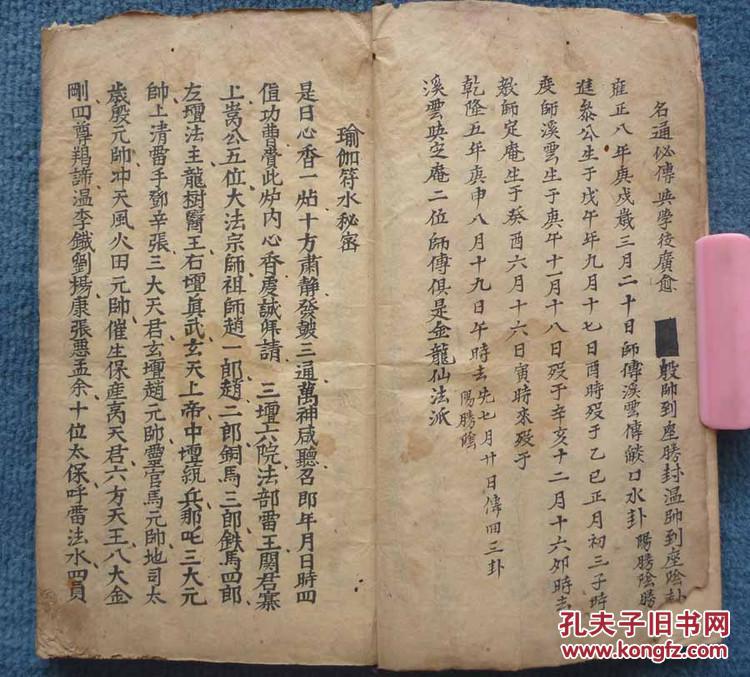 名通必傳與學徒廣愈 般帥到座勝封溫帥到座陰卦
雍正八年庚戌歲三月二十日師傳溪雲傳餤口水卦陽勝陰勝
進泰公生于戊午年九月十七日酉時歿于乙巳正月初三子時
度師溪雲生于庚午十一月十八日歿于辛亥十二月十六夘時去
教師定庵生于癸酉六月十六日寅時來歿于
乾隆五年庚申八月十九日午時去先七月廿日傳田三卦陽勝陰
溪雲與定庵二位師傳俱是金龍仙法派
瑜伽符水秘密
是日心香一炷十方肅静發皷三通萬神咸聽召即年月日時四
值功曹賫此炉内心香虔誠拜請 三壇六院法部雷王閣君寨
上嵩公五位大法宗師祖師趙一郎趙二郎銅馬三郎鉄馬四郎
左壇法主龍樹醫王右壇眞武玄天上帝中壇統兵那叱三大元
帥上清雷手鄧辛張三大天君玄壇趙元帥靈官馬元帥地司太
歲殷元帥冲天風火田元帥催生保産高天君六方天王八大金
剛四尊羯諦溫李鐡劉楊康張悪孟余十位太保呼雷法水四員
孔夫子旧书网
www.kongfz.com